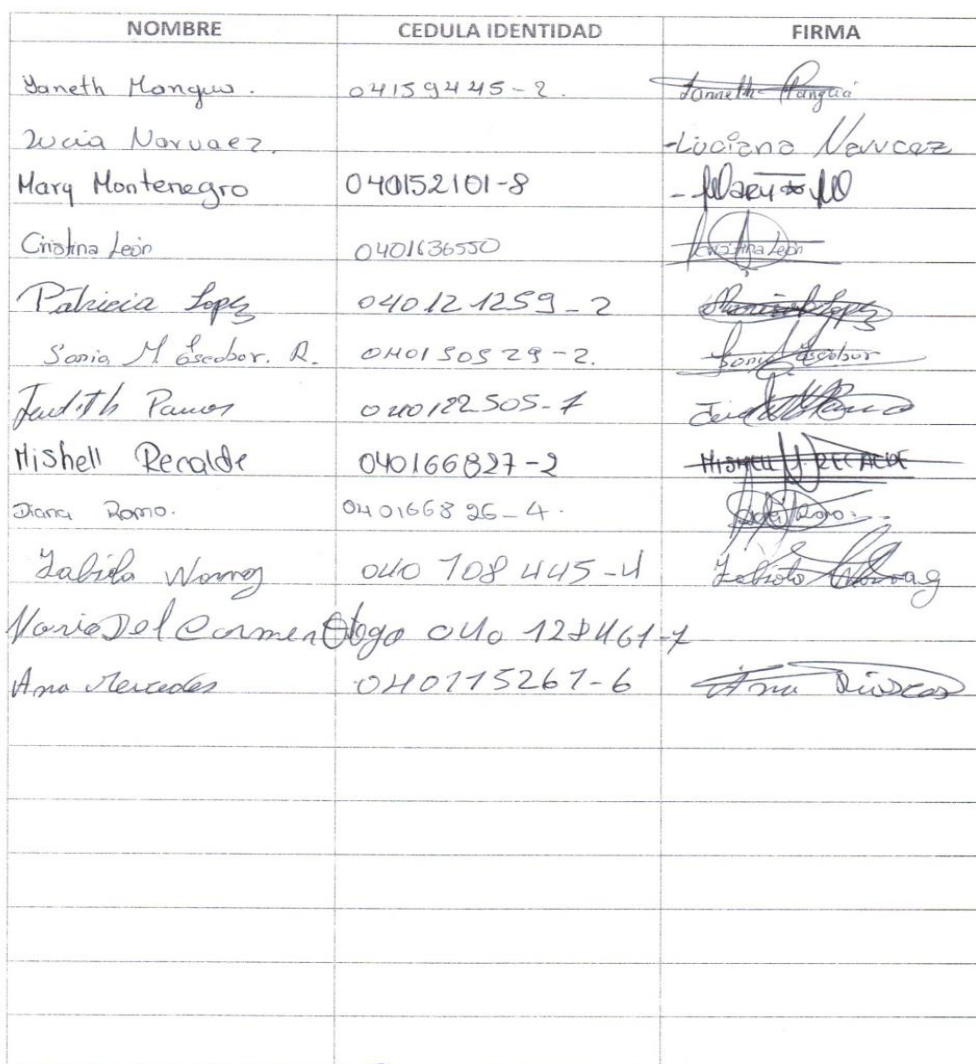 NOMBRE CEDULA IDENTIDAD FIRMA
Yaneth Mangus. 04159445-2. Janneth
Lucia Narvaez. -Luciana Narvaez
Mary Montenegro 040152101-8 - Mary
Cristina León 0401636550 Cristina León
Patricia Lopez 040121259-2 Lopez
Sonia M. Escobar. R. 040150529-2. Sonia Escobar
Judith 040122505-7
Mishell Recalde 040166827-2 MISHELL J. RECALDE
Diana Romo. 040166826-4. Romo
Fabiola 040108445-4 Fabiola
Maria Del Carmen 040128461-7
Ana Mercedes 040115261-6 Ana